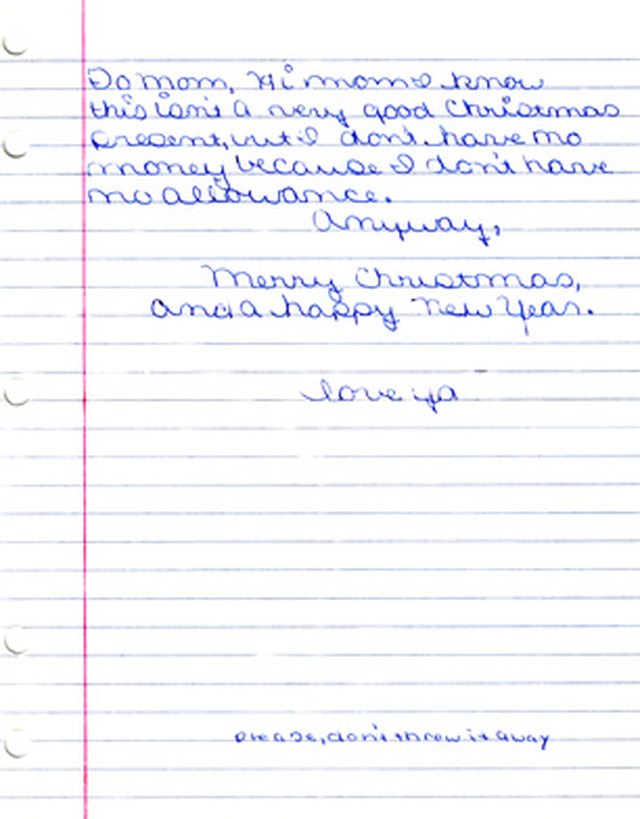 To Mom, Hi mom I know
this isn't a very good Christmas
present, but I don't have no
money because I don't have
no allowance.
Anyway,
Merry Christmas,
and a happy New Year.
love ya
please, don't throw it away